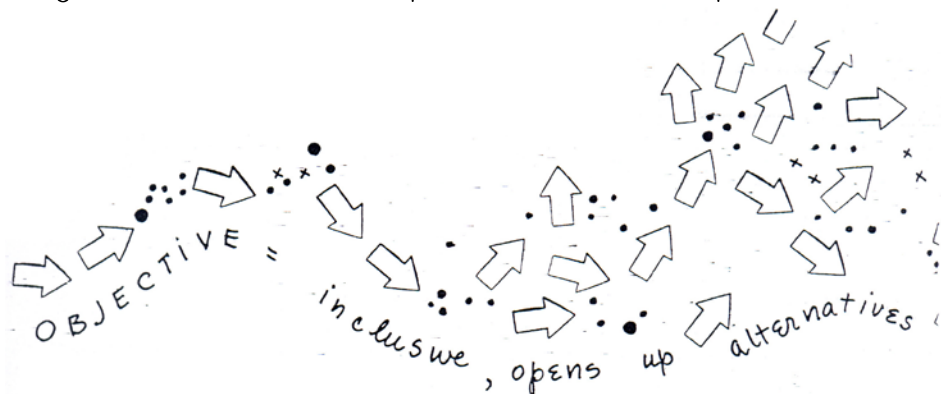 OBJECTIVE =
inclusive, opens up alternatives